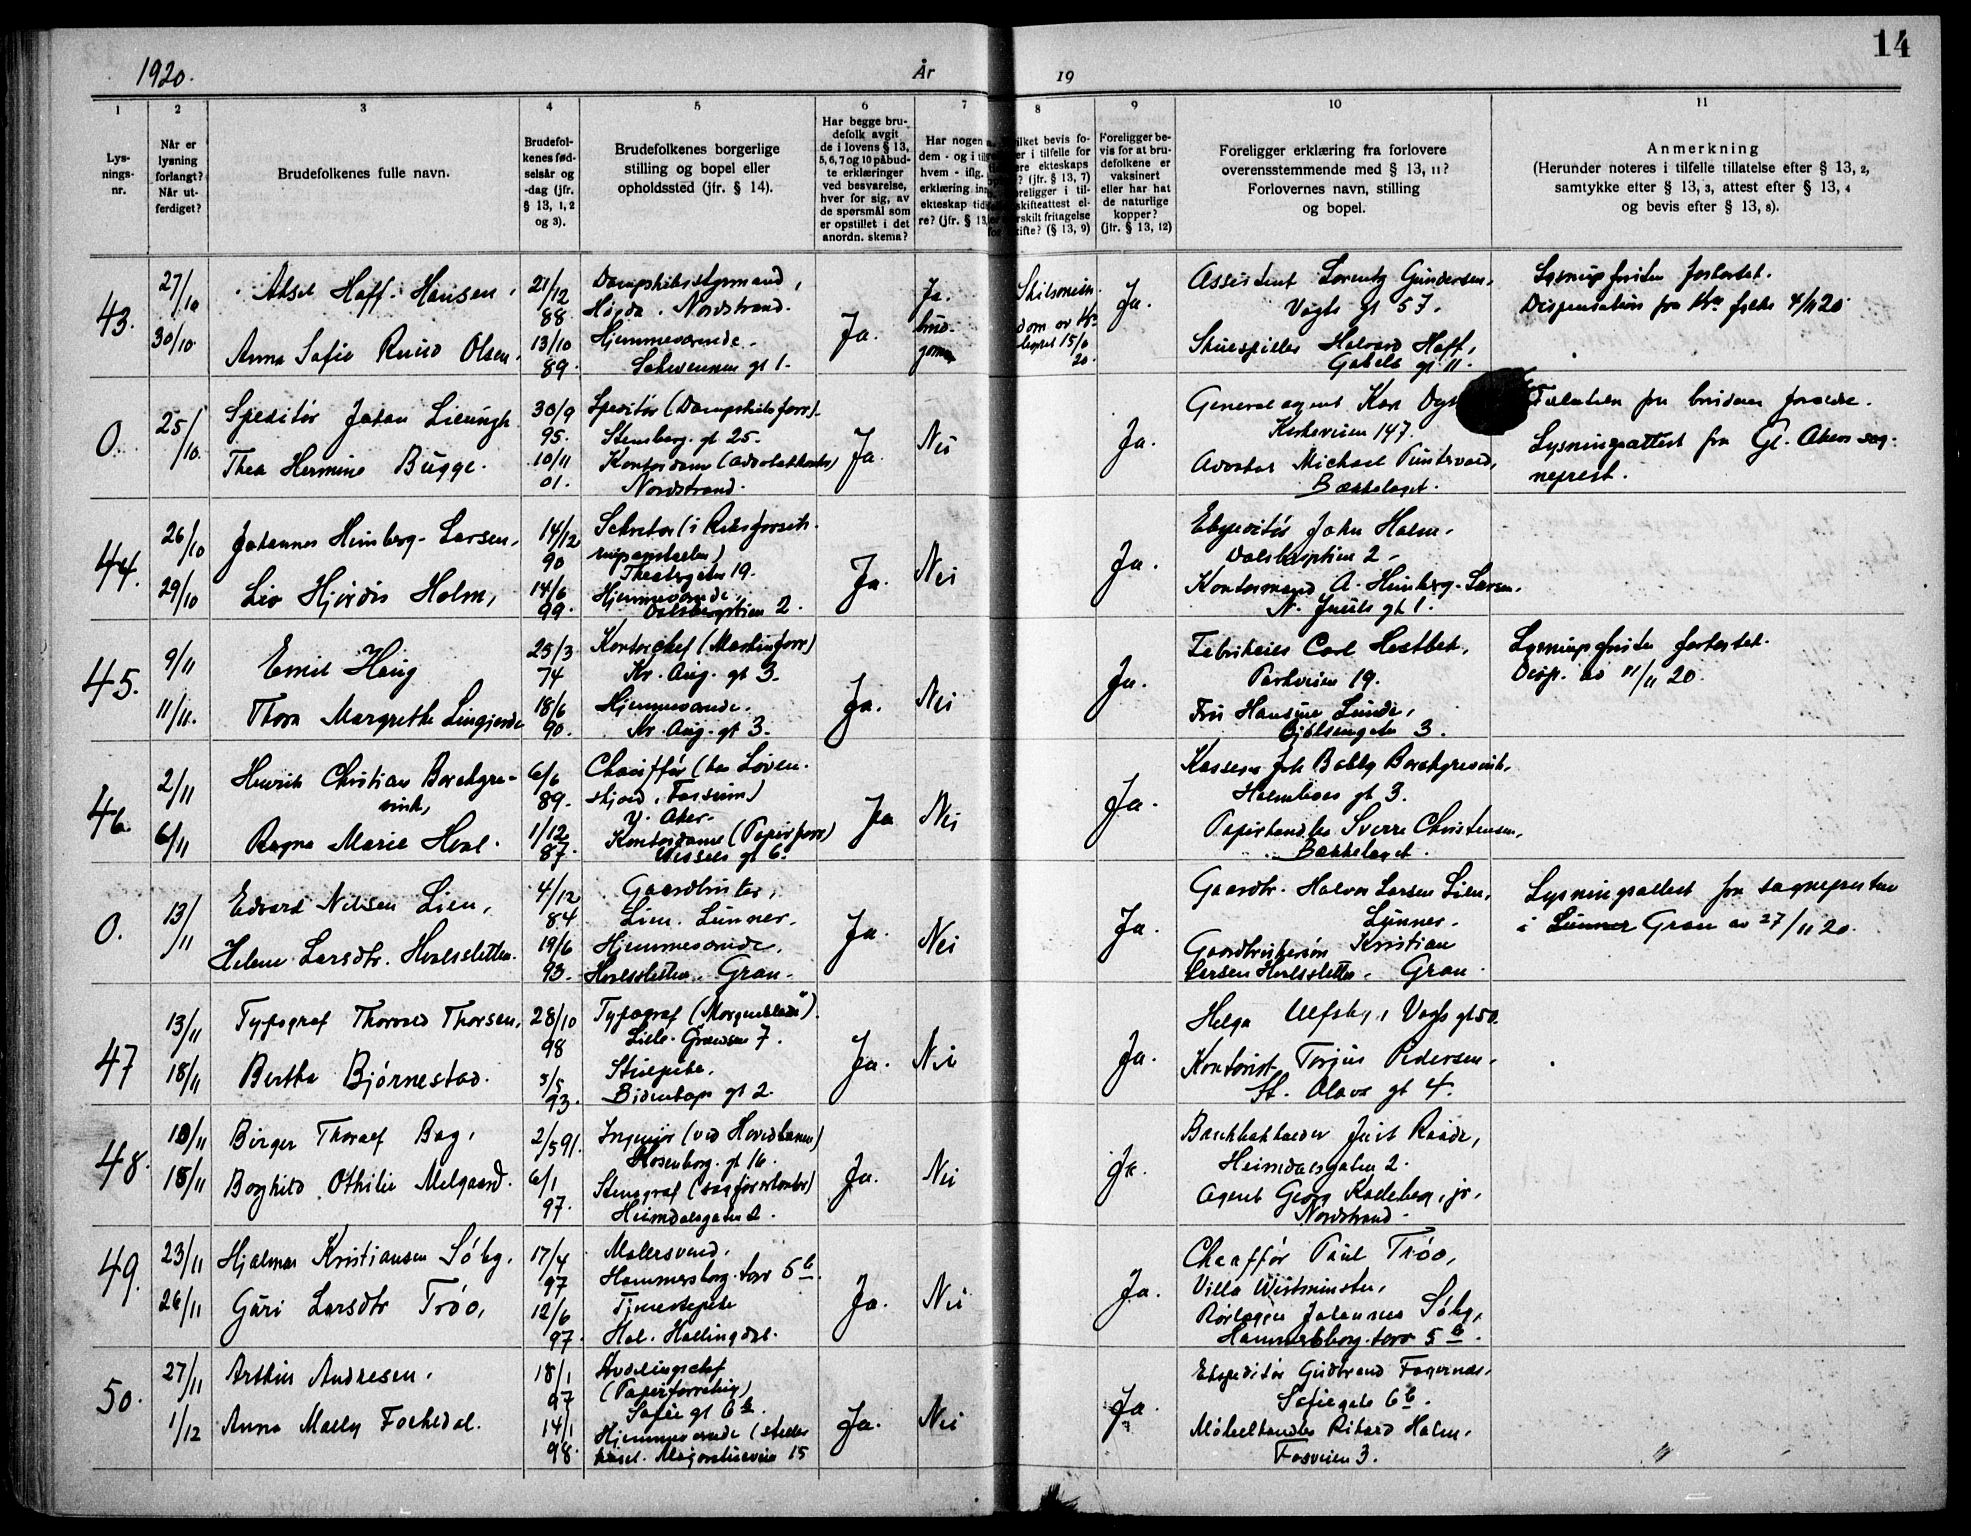 14
1920.
År
19
1
2
3
4
5
6
7
8
9
10
11
Lys-
nings-
nr.
Når er
lysning
forlangt?
Når ut-
ferdiget?
Brudefolkenes fulle navn.
Brudefol-
kenes fød-
selsår og
-dag (jfr.
§ 13, 1, 2
og 3).
Brudefolkenes borgerlige
stilling og bopel eller
opholdssted (jfr. § 14).
Har begge bru-
defolk avgit
de i lovens § 13,
5, 6, 7 og 10 påbud-
te erklæringer
ved besvarelse,
hver for sig, av
de spørsmål som
er opstillet i det
anordn. skema?
Har nogen a
dem - og i til
hvem - iflg.
erklæring inn
ekteskap tid
re? (jfr. § 13,
ilket bevis fo-
er i tilfelle for
ere ekteskaps
? (jfr. § 13, 7)
oreligger i til-
skifteattest el-
rskilt fritagelse
kifte? (§ 13, 9)
Foreligger be-
vis for at bru-
defolkene er
vaksinert
eller har hat
de naturlige
kopper?
(jfr. § 13, 12)
Foreligger erklæring fra forlovere
overensstemmende med § 13, 11?
Forlovernes navn, stilling
og bopel.
Anmerkning
(Herunder noteres i tilfelle tillatelse efter § 13, 2,
samtykke efter § 13, 3, attest efter § 13, 4
og bevis efter § 13, 8).
43.
27/10
30/10
Aksel Hoff-Hansen,
Anna Sofie Ruud Olsen.
21/12
88.
13/10
89.
Dampskibsstyrmand,
Nordstrand.
Hjemmeværende.
Schwensens gt 1.
Ja.
Ja.
brud-
gommen
15/6
20.
Ja.
Assistent Lorentz Gundersen,
Vogts gt 57.
Skuespiller Halvard Hoff,
Gabels gt 11.
Lysningsfristen forkortet.
Dispensation fra 4/11 20.
0.
25/10.
Speditør Johan
Thea Hermine Bugge.
30/9
95.
10/11
01.
Speditør (Dampskibsforr.)
Stensberg. gt 25.
Kontordame (Advokatkontor)
Nordstrand.
Ja.
Nei
Ja.
Generalagent Karl
Kirkeveien 147.
Advokat Michael Puntervold,
Bækkelaget.
Tillatelse fra brudens foreldre.
Lysningsattest fra Gl. Akers sog-
neprest.
44.
26/10
29/10
Johannes Heimberg-Larsen,
Liv Hjørdis Holm,
14/12
90
14/6
99.
Sekretær (i Riksforsik-
ringsanstalten)
Theatergaten 19.
Hjemmeværende,
Dalsbergstien 2.
Ja.
Nei
Ja.
Ekspeditør John Holm.
Dalsbergstien 2.
Kontormand A. Heimberg-Larsen.
N. Juuls gt 1.
45.
9/11
11/11.
Emil Haug
Thora Margrethe Lingjerde
25/3
74
18/6
90.
Kontorchef (Maskinforr)
Kr. Aug. gt 3.
Hjemmeværende.
Kr. Aug. gt 3.
Ja.
Nei
Ja.
Fabrikeier Carl
Parkveien 19.
Fru Hansine Lunde,
3.
Lysningsfristen forkortet.
Disp. av 11/11 20.
46.
2/11
6/11
Henrik Christian Borchgre-
vink,
Ragna Marie Hval.
6/6
89.
1/12
87.
Chauffør (hos Løven-
skjold, Fossum)
V. Aker.
Kontordame (Papirforr)
Wessels gt 6.
Ja
Nei
Ja.
Kasserer Joh Bobby Borchgrevink,
Holmboes gt 3.
Papirhandler Sverre Christensen,
Bækkelaget.
0.
13/11
Edvard Nilsen Lien,
Helene Larsdtr. Hvalssletten.
4/12
84.
19/6
93.
Gaardbruker,
Lien. Lunner.
Hjemmeværende,
Hvalssletten. Gran.
Ja.
Nei
Ja.
Gaardbr. Halvor Larsen Lien,
Lunner.
Gaardbrukersøn Kristian
Larsen Hvalssletten. Gran.
Lysningsattest fra sogneprsten
i Lunner Gran av 27/11 20.
47
13/11
18/11
Typograf Thorvald Thorsen,
Bertha Bjørnestad.
28/10
98
5/5
93.
Typograf (Morgenbladet).
Lille Grændsen 7.
Stuepike.
Bidenkaps gt 2.
Ja.
Nei
Ja.
Helga Ulfsby, Vogts gt 50.
Kontorist Torjus Pedersen.
St. Olavs gt 4.
48.
10/11
18/11
Birger Thoralf Bog,
Borghild Othilie Melgaard.
2/5 91.
6/1
97.
Ingeniør (ved Hovedbanen)
Rosenborg. gt 16.
Stenograf (sagførerkontor)
Heimdalsgaten 2.
Ja.
Nei
Ja.
Bankbokholder Just Raade,
Heimdalsgaten 2.
Agent Georg jr.
Nordstrand.
49.
23/11
26/11
Hjalmar Kristiansen Søby,
Guri Larsdtr Trøo,
17/4
97
12/6
97.
Malersvend.
Hammersborg. torv 5 b.
Tjenestepike
Hol. Hallingdal.
Ja.
Nei
Ja.
Chauffør Paul Trøo,
Villa Westminster,
Rørlegger Johannes Søby,
Hammersborg. torv 5 b.
50.
27/11
1/12
Arthur Andresen.
Anna Mally Forkedal.
18/1
97
14/1
98.
Avdelingschef
(Papirforretning)
Sofie gt 6 b.
Hjemmeværende (steller
huset. Majorstuveien 15
Ja.
Nei
Ja.
Ekspeditør Gudbrand Fagernæs,
Sofiegate 6 b.
Møbelhandler Rikard Holm,
Fossveien 3.